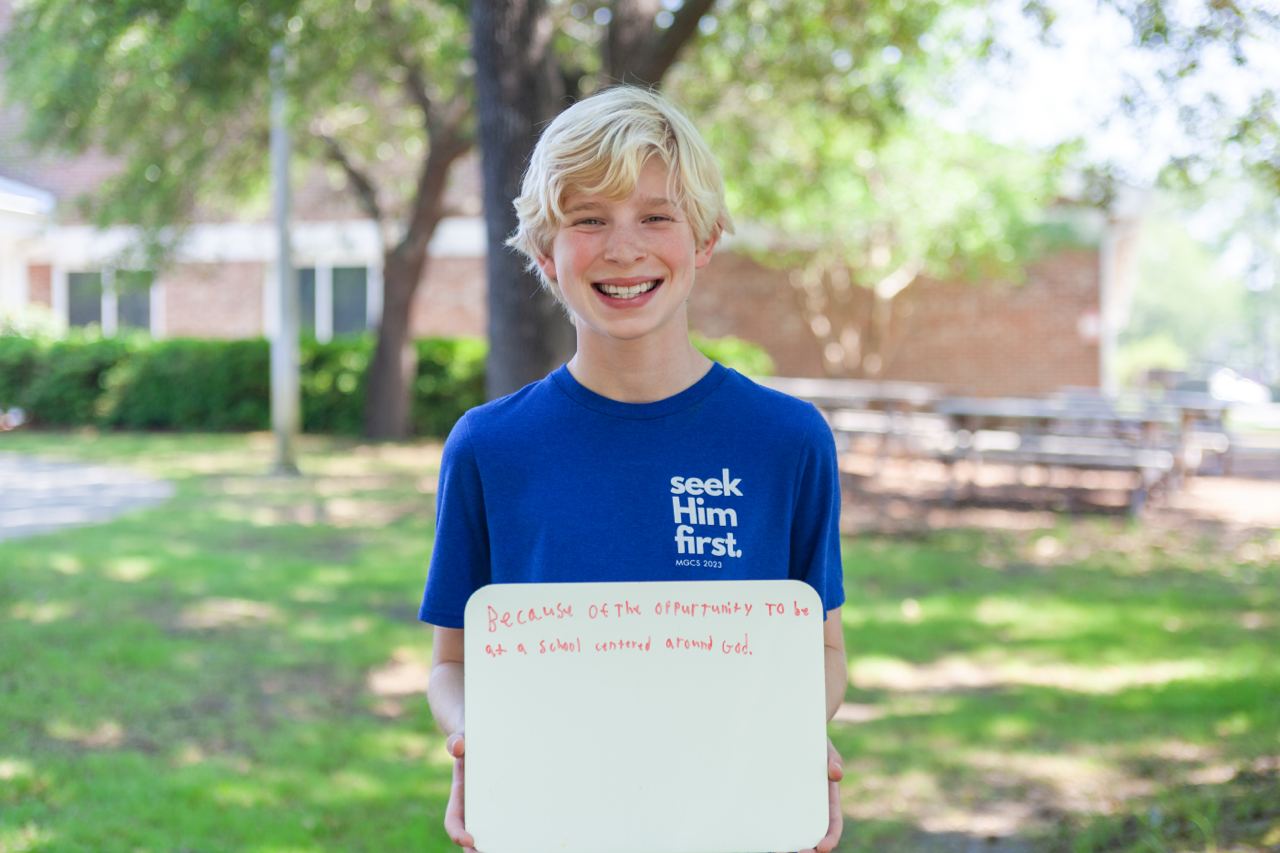 seek
Him
first.
MGCS 2023
Because of the oppurtunity to be
at a school centered around God.